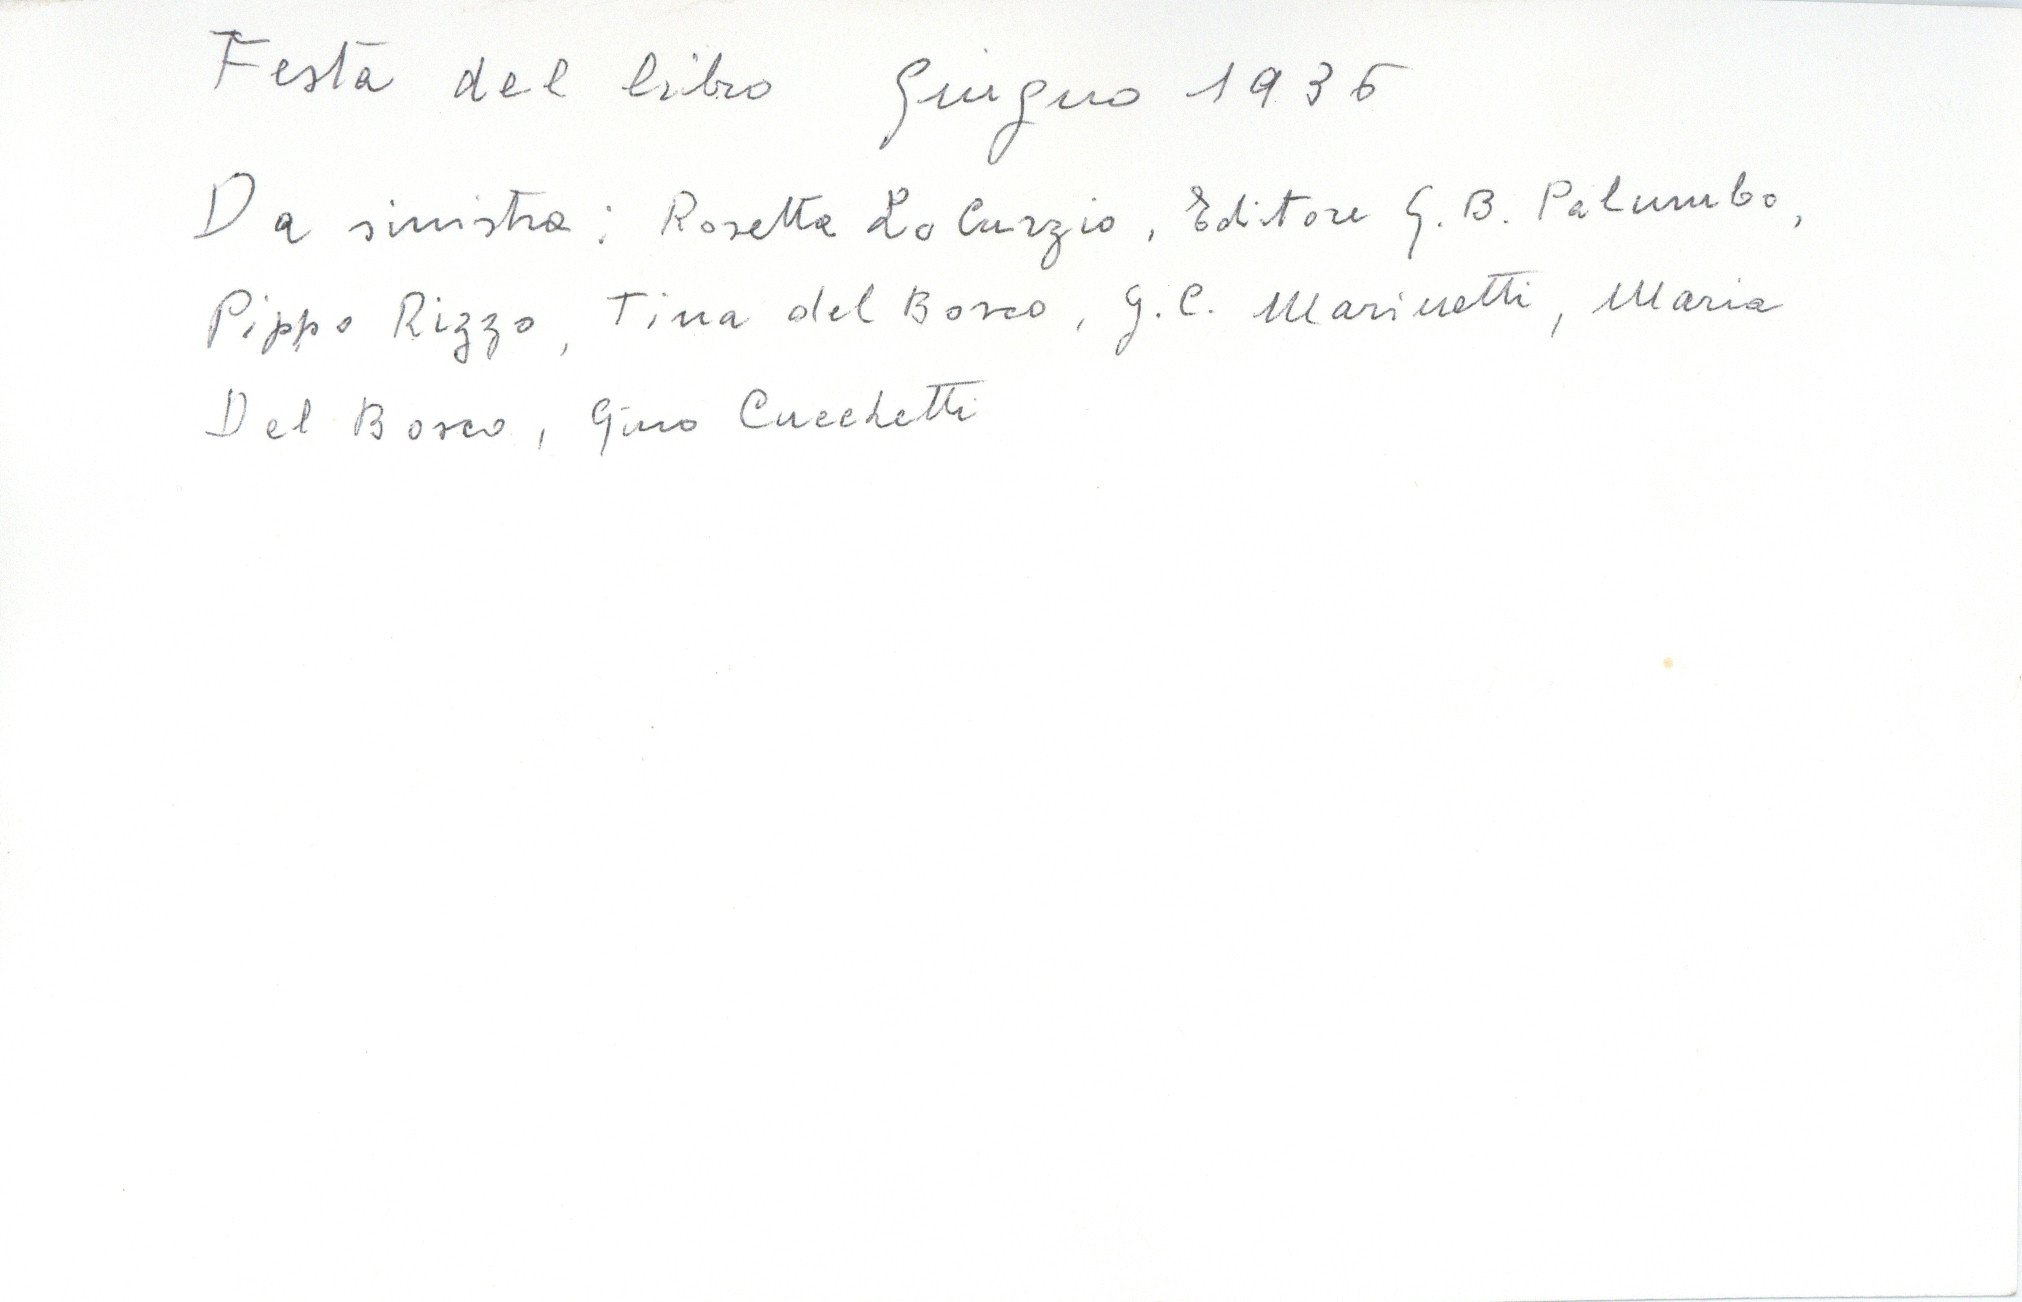 Festa del libro Giugno 1936
Da sinistra: Rosetta Lo Curzio, Editore G. B. Palumbo,
Pippo Rizzo, Tina del Bosco, G. C. Marinetti, Maria
Del Bosco, Gino Cucchetti